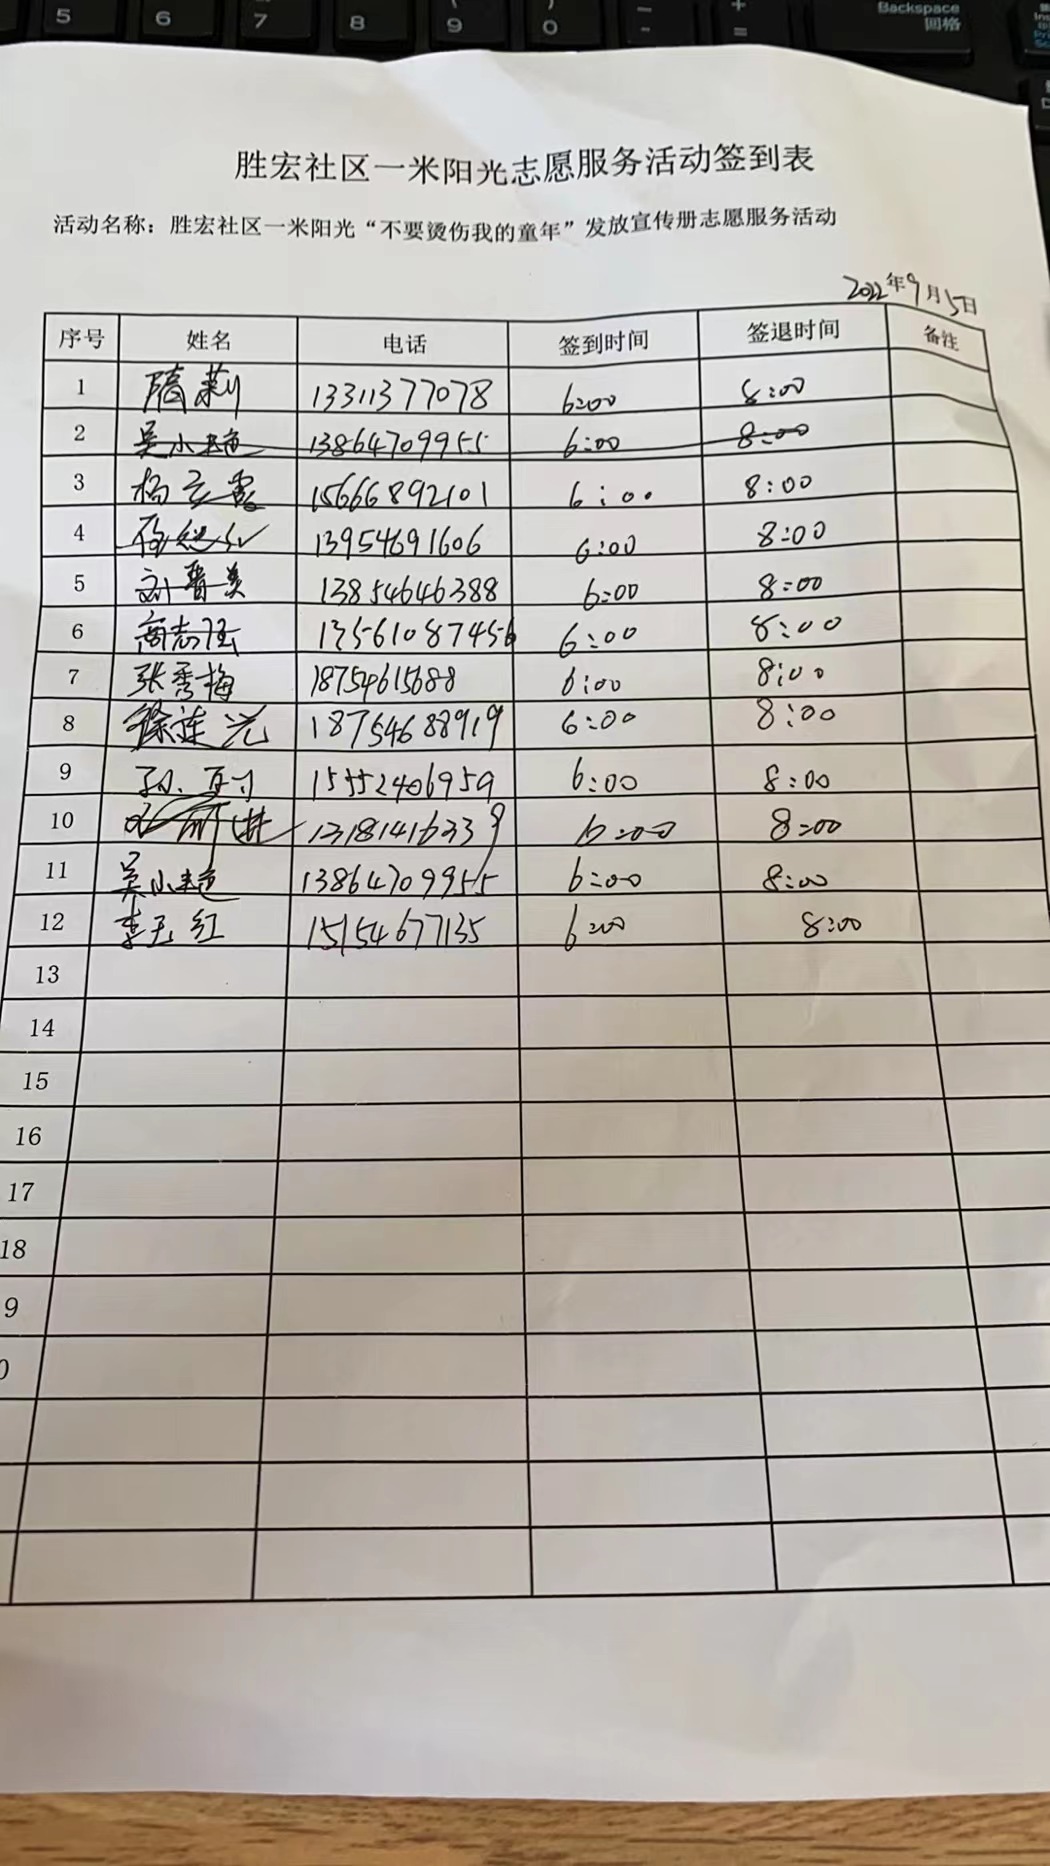 5 6 7 8 9 0 - + = Backspace 回格
胜宏社区一米阳光志愿服务活动签到表
活动名称：胜宏社区一米阳光“不要烫伤我的童年”发放宣传册志愿服务活动
2022年9月5日
序号 姓名 电话 签到时间 签退时间 备注
1 隋莉 13311377078 6:00 8:00
2 吴小超 13864709955 6:00 8:00
3 杨立霞 15666892101 6:00 8:00
4 13954691606 6:00 8:00
5 刘晋美 13854646388 6:00 8:00
6 商志 13561087456 6:00 8:00
7 张秀梅 18754615688 6:00 8:00
8 徐连 18754688919 6:00 8:00
9 孙 15552406959 6:00 8:00
10 13181416339 6:00 8:00
11 吴小超 13864709955 6:00 8:00
12 李玉红 15154677135 6:00 8:00
13
14
15
16
17
18
9
0